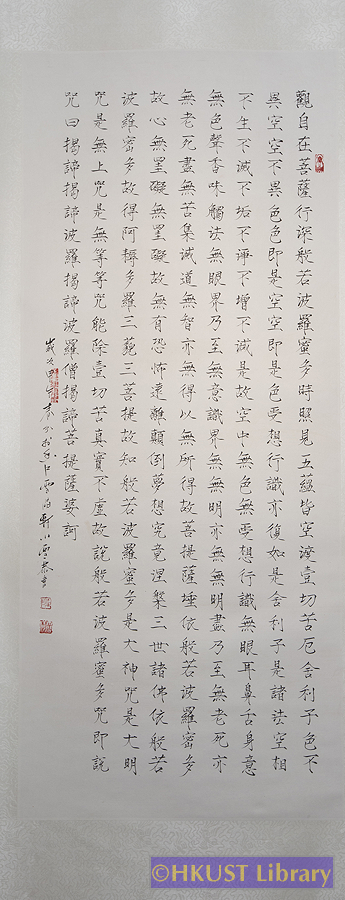 觀自在菩薩行深般若波羅蜜多時照見五蘊皆空渡壹切苦厄舍利子色不
異空空不異色色即是空空即是色受想行識亦復如是舍利子是諸法空相
不生不滅不垢不淨不增不減是故空中無色無受想行識無眼耳鼻舌身意
無色聲香味觸法無眼界乃至無意識界無無明亦無無明盡乃至無老死亦
無老死盡無苦集滅道無智亦無得以無所得故菩提薩埵依般若波羅密多
故心無罣礙無罣礙故無有恐怖遠離顛倒夢想究竟涅槃三世諸佛依般若
波羅密多故得阿耨多羅三藐三菩提故知般若波羅蜜多是大神咒是大明
咒是無上咒是無等等咒能除壹切苦真實不虛故說般若波羅蜜多咒即說
咒曰揭諦揭諦波羅揭諦波羅僧揭諦菩提薩婆訶
歲次
©HKUST Library